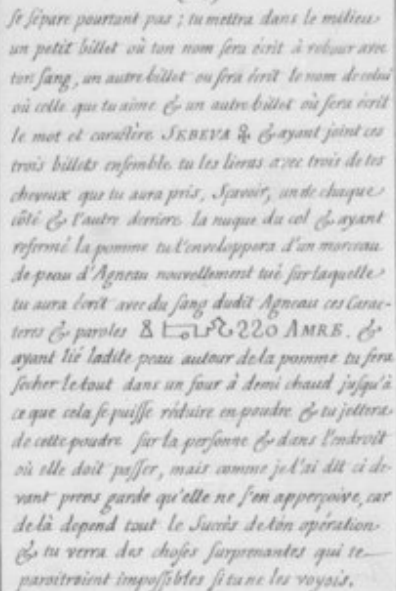 se sépare pourtant pas ; tu mettra dans le milieu
un petit billet où ton nom sera écrit à rebour avec
ton sang, un autre billet ou sera écrit le nom de celui
où celle que tu aime & un autre billet où sera écrit
le mot et caractère SEBEVA & ayant joint ces
trois billets ensemble tu les lieras avec trois de tes
cheveux que tu aura pris, Sçavoir, un de chaque
côté & l'autre derriere la nuque du col & ayant
refermé la pomme tu l'enveloppera d'un morceau
de peau d'Agneau nouvellement tué sur laquelle
tu aura écrit avec du sang dudit Agneau ces Carac-
teres & paroles 220 AMRE. &
ayant lié ladite peau autour de la pomme tu fera
secher le tout dans un four à demi chaud jusqu'à
ce que cela se puisse réduire en poudre & tu jettera
de cette poudre sur la personne & dans l'endroit
où elle doit passer, mais comme je t'ai dit ci de-
vant prens garde qu'elle ne s'en apperçoive, car
de là depend tout le Succès de ton opération
& tu verra des choses surprenantes qui te
paroitroient impossibles si tu ne les voyois.